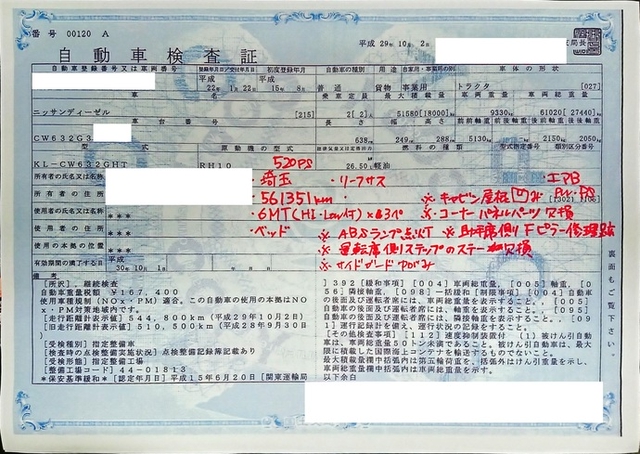 番号 00120 A
平成 29年 10月 2日
局長
自動車検査証
自動車登録番号又は車両番号 登録年月日/交付年月日 初度登録年月 自動車の種別 用途 自家用・事業用の別 車体の形状
平成 平成
22年 1月 22日 15年 8月 普通 貨物 事業用 トラクタ [027]
車名 乗車定員 最大積載量 車両重量 車両総重量
ニッサンディーゼル [215] 2[ 2]人 51580[18000]kg 9330kg 61020[27440]kg
車台番号 長さ 幅 高さ 前前軸重 前後軸重 後前軸重 後後軸重
CW632G 638cm 249cm 288cm 5130kg 2150kg 2050kg
型式 原動機の型式 燃料の種類 型式指定番号 類別区分番号
KL-CW632GHT RH10 520PS 26.50L 軽油
所有者の氏名又は名称 ・埼玉 ・リーフサス ・エアB
所有者の住所 ・561351km ※キャビン屋根凹み PW.PS
使用者の氏名又は名称 *** ・6MT(Hi・Low付)×3ペ ※コーナーパネルパーツ欠損
使用者の住所 *** ・ベッド ※ABSランプ点灯 ※助手席側Fピラー修理跡
使用の本拠の位置 *** ※運転席側ステップのステー欠損
有効期間の満了する日 平成 30年 10月 1日 ※サイドガード凹み
備考
裏面もご覧下さい。
[所沢] 継続検査
自動車重量税額 ¥167,400
使用車種規制(NOx・PM)適合。この自動車の使用の本拠はNOx・PM対策地域内です。
[走行距離計表示値] 544,800km(平成29年10月2日)
[旧走行距離計表示値] 510,500km(平成28年9月30日)
[受検種別] 指定整備車
[検査時の点検整備実施状況] 点検整備記録簿記載あり
[受検形態] 指定整備工場
[整備工場コード] 44-01813
*保安基準緩和*[認定年月日] 平成15年6月20日 [関東運輸局
]392[緩和事項][004]車両総重量、[005]軸重、[0
56]隣接軸重、[098]一括緩和[制限事項][004]自動車
の後面及び運転者席には、車両総重量を表示すること。[005]
自動車の後面及び運転者席には、軸重を表示すること。[095]
自動車の後面及び運転者席には、隣接軸重を表示すること。[09
1]運行記録計を備え、運行状況の記録をすること。
[その他検査事項][112]速度抑制装置付 (1)被けん引自動
車は、車両総重量50トン未満であること。被けん引自動車は、最大
限に積載した国際海上コンテナを輸送するものでないこと。
最大積載量欄中括弧内は第五輪荷重を、括弧外はけん引重量を示し、
車両総重量欄中括弧内は車両総重量を示す。
以下余白